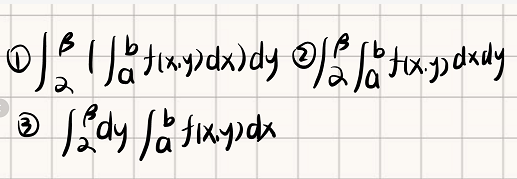 ① ∫₂^β (∫ₐ^b f(x,y)dx)dy ② ∫₂^β ∫ₐ^b f(x,y)dxdy
③ ∫₂^β dy ∫ₐ^b f(x,y)dx